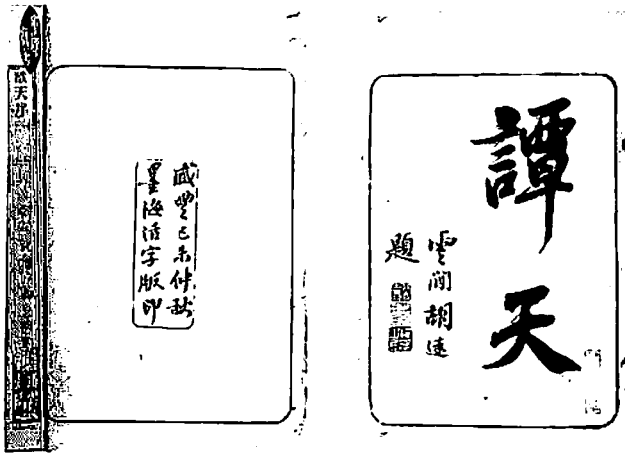 譚天
雲間胡遠
題
咸豐己未仲秋
墨海活字版印